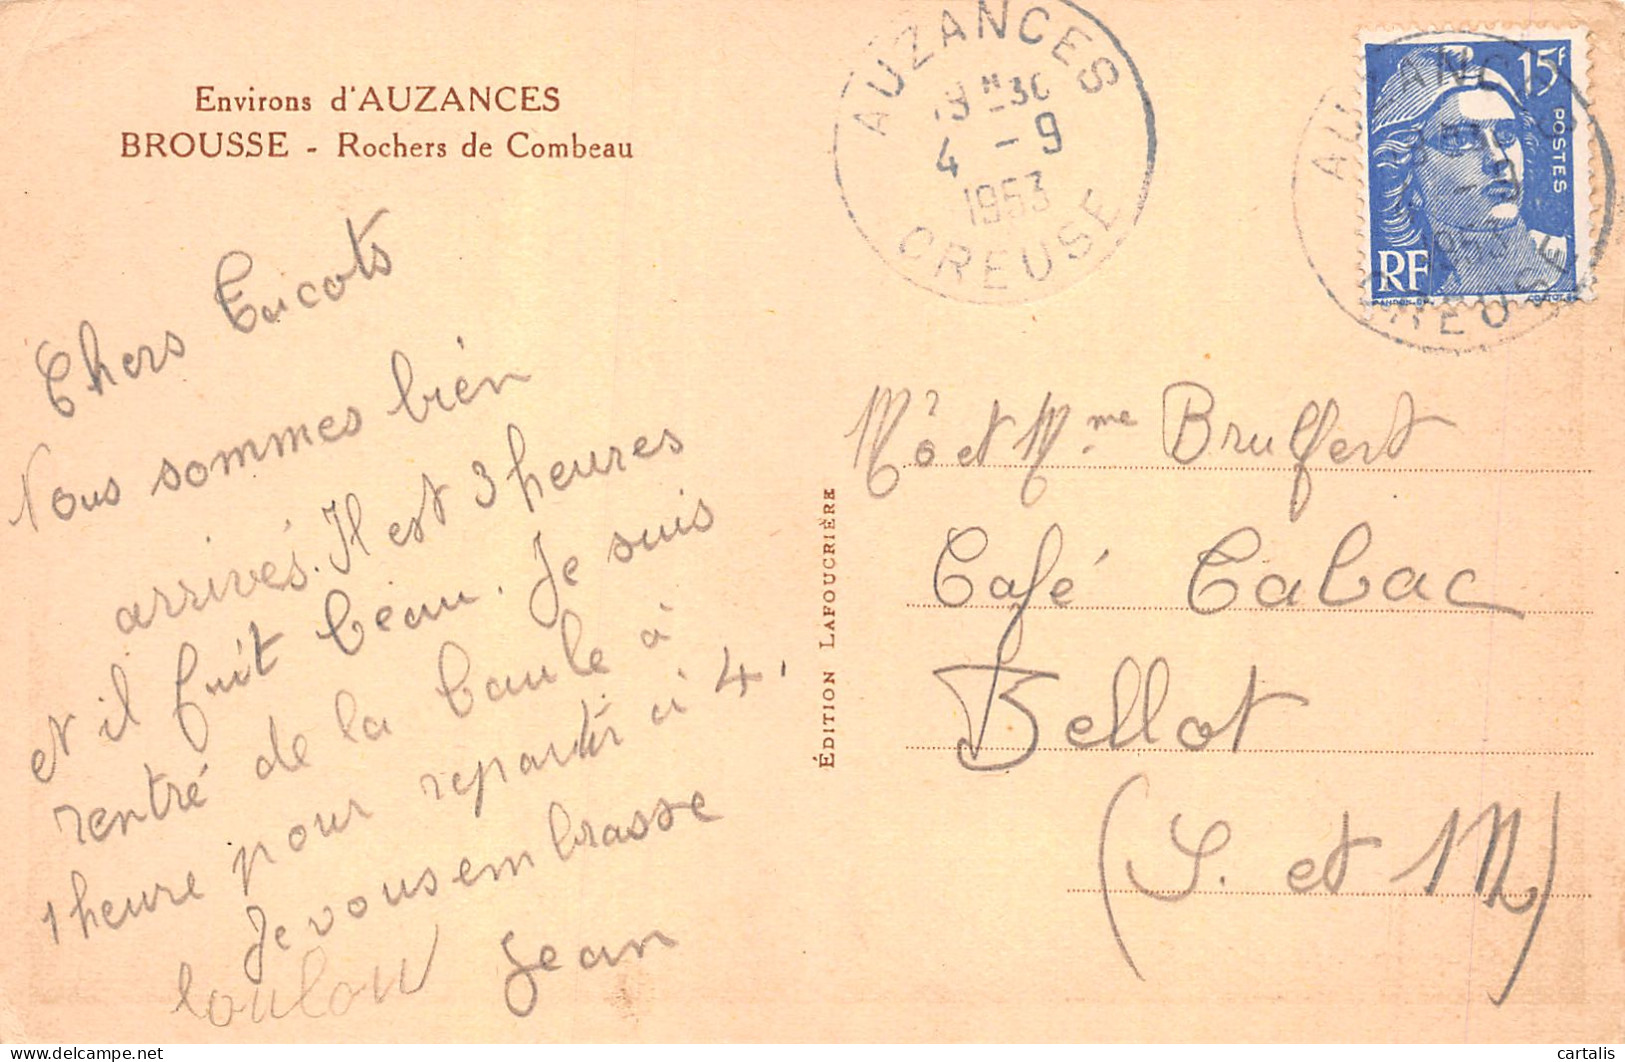 Environs d'AUZANCES
BROUSSE - Rochers de Combeau
Chers
Nous sommes bien
arrivés. Il est 3 heures
et il fait beau. Je suis
rentré de la baule à
1 heure pour repartir à 4.
Je vous embrasse
Jean
loulou
ÉDITION LAFOUCRIÈRE
AUZANCES
19 H 30
4 - 9
1953
CREUSE
15F
POSTES
RF
AUZANCES
CREUSE
Mr et Mme Brulfert
Café Tabac
Bellot
(S. et M)
cartalis